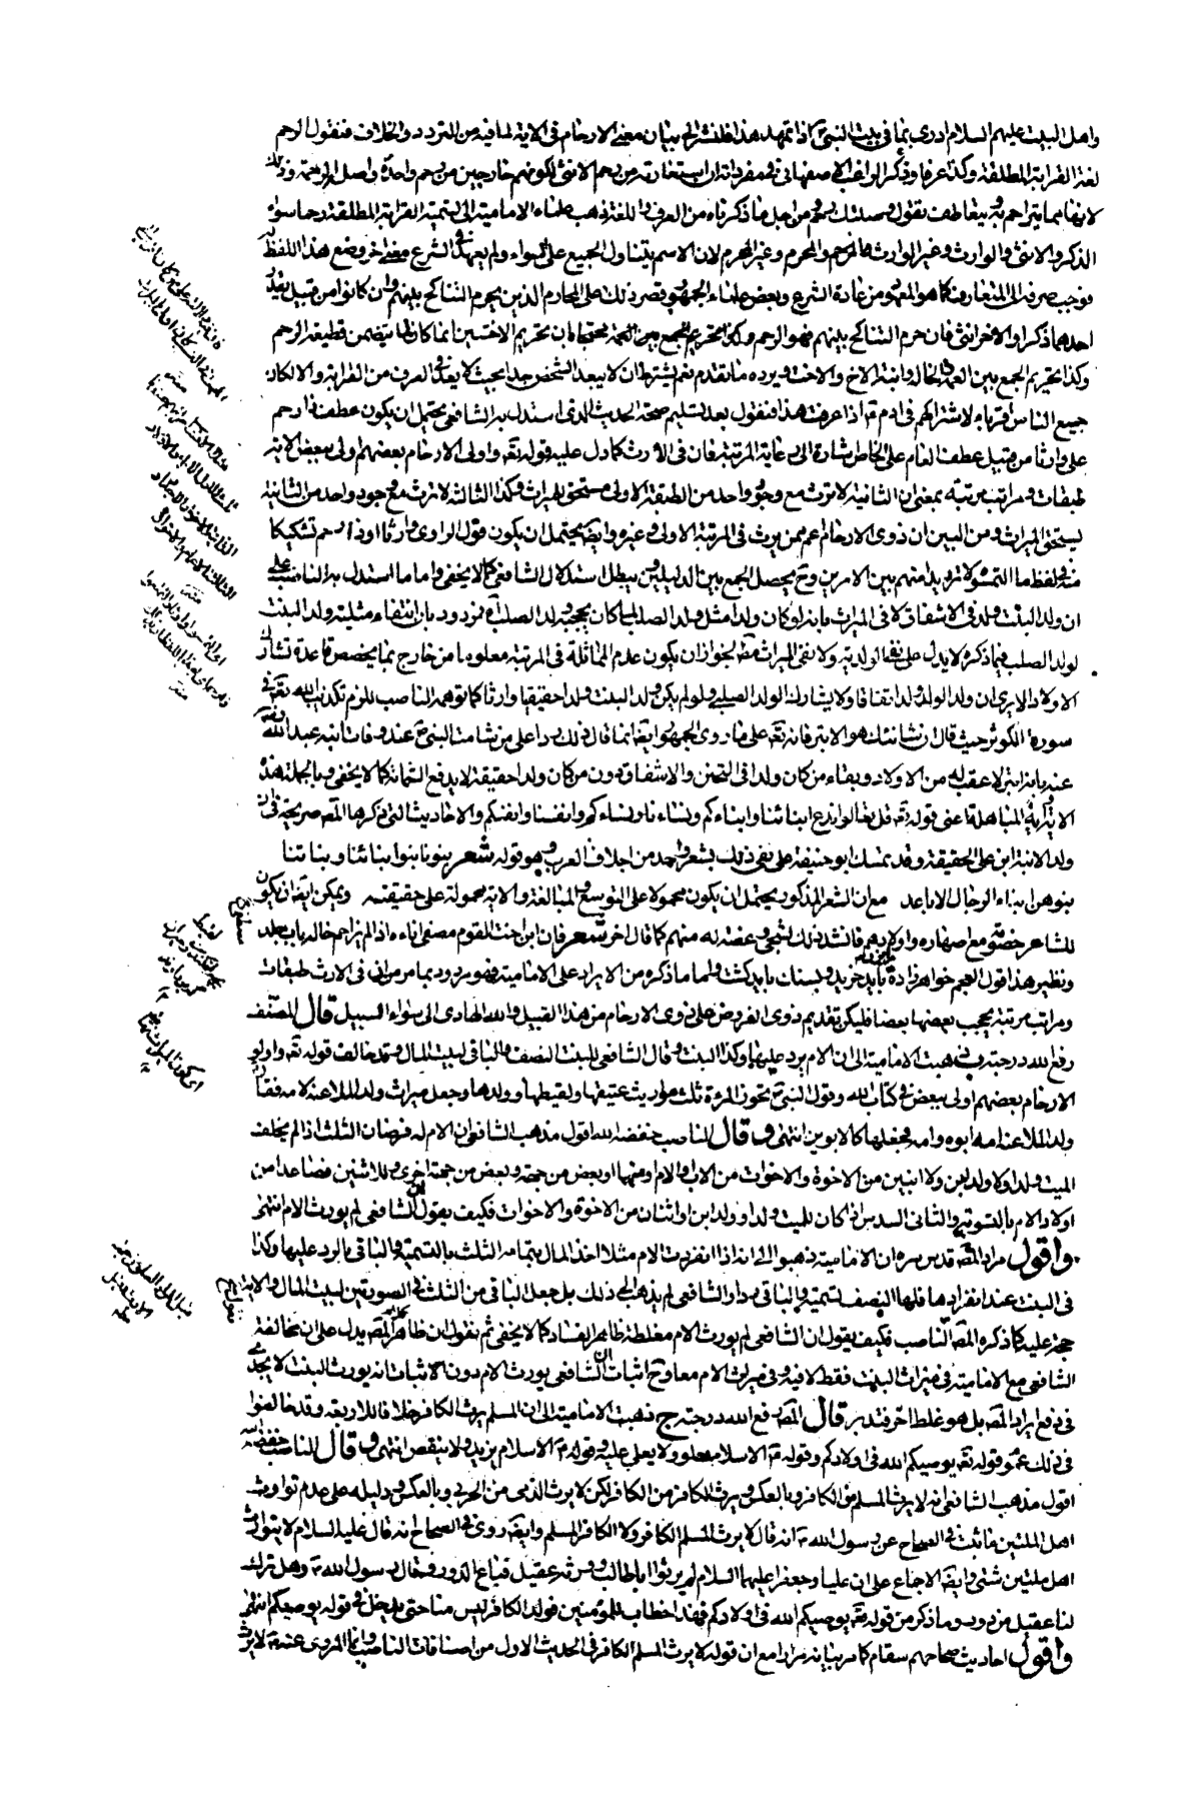 واهل البيت عليهم السلام ادرى بما في بيت النبي ص اذا تمهد هذا فلنشرع ببيان معنى الارحام في الاية لما فيه من التردد والخلاف فنقول الرحم
لغة القرابة المطلقة وكذا عرفا وذكر الراغب الاصفهاني في مفرداته ان استعارته من رحم الانثى لكونهم خارجين من رحم واحدة واصل الرحمة وذلك
لانها مما يتراحم به ويتعاطف يقول وصلتك رحم ومن اجل ما ذكرناه من العرف واللغة ذهب علماء الامامية الى تسمية القرابة المطلقة رحما سواء
الذكر والانثى والوارث وغير الوارث والمحرم وغير المحرم لان الاسم يتناول الجميع على السواء ولم يعهد في الشرع معنى اخر وضع هذا اللفظ له
فوجب صرفه الى المتعارف كما هو المعهود من عادة الشرع وبعض علماء الجمهور قصر ذلك على المحارم الذين يحرم التناكح بينهم وان كانوا من قبيل يقدر
احدهما ذكرا والاخر انثى فان حرم التناكح بينهم فهو الرحم بان تحريم الاختين انما كان لما يتضمن من قطيعة الرحم
وكذا تحريم الجمع بين العمة والخالة وابنة الاخ والاخت ويرده ما تقدم نعم يشترط ان لا يبعد الشخص جدا بحيث لا يعد في العرف من القرابة والا لكان
جميع الناس اقرباء لاشتراكهم في ادم ع اذا عرفت هذا فنقول بعد تسليم صحة الحديث الذي استدل به الشافعي يحتمل ان يكون عطف ذا رحم
على وارثا من قبيل عطف العام على الخاص اشارة الى رعاية المرتبة فان في الارث كما دل عليه قوله تعالى واولى الارحام بعضهم اولى ببعض الاية
طبقات ومراتب مرتبة بمعنى ان الثانية لا ترث مع وجود واحد من الطبقة الاولى مستحق للميراث وكذا الثالثة لا ترث مع وجود واحد من الثانية
يستحق الميراث ومن البين ان ذوي الارحام اعم ممن يرث في المرتبة الاولى وغيره وايضا يحتمل ان يكون قول الراوي وارثا او ذا رحم تشكيكا
منه في لفظ ما التمسوه لا ترديدا منهم بين الامرين وح يحصل الجمع بين الدليلين ويبطل استدلال الشافعي كما لا يخفى واما ما استدل به الناصب على
ان ولد البنت ولد في الاشفاق لا في الميراث بانه لو كان ولدا مثل ولد الصلب لما كان يحجبه ولد الصلب اه فمردود بان انتفاء مثلية ولد البنت
لولد الصلب فيما ذكره لا يدل على نفي الولدية ولا نفي الميراث مطلقا لجواز ان يكون عدم المماثلة في المرتبة معلوما من خارج بما يخصص قاعدة تشارك
الاولاد الا يرى ان ولد الولد ولد اتفاقا ولا يشارك الولد الصلبي ولو لم يكن ولد البنت ولدا حقيقيا وارثا كما توهمه الناصب للزم تكذيب الله تعالى في
سورة الكوثر حيث قال ان شانئك هو الابتر فانه تعالى على ما روى الجمهور ايضا انما قال ذلك ردا على من شامت النبي ص عند وفات ابنه عبد الله
عنه بانه ابتر لا عقب له من الاولاد وبقاء من كان ولدا في التحنن والاشفاق دون من كان ولدا حقيقة لا يدفع الشماتة كما لا يخفى وبالجملة هذه
الاية واية المباهلة اعني قوله تعالى قل تعالوا ندع ابنائنا وابناءكم ونساءنا ونساءكم وانفسنا وانفسكم والاحاديث التي ذكرها المصنف صريحة في ان
ولد الابنة ابن على الحقيقة وقد تمسك ابو حنيفة على نفي ذلك بشعر واحد من اجلاف العرب وهو قوله شعر بنونا بنوا ابنائنا وبناتنا
بنوهن ابناء الرجال الاباعد مع ان الشعر المذكور يحتمل ان يكون محمولا على التوسع والمبالغة والاية محمولة على حقيقته ويمكن ايضا ان يكون
للشاعر خصومة مع اصهاره واولادهم فانشد ذلك لشيء وعضته له منهم كما قال اخر شعر فان ابن اخت القوم مصغى اناءه اذا لم يزاحم خاله باب جلد
ونظير هذا قول العجم خواهر زاده بايد خريد وبستان بايد كشت واما ما ذكره من الايراد على الامامية فهو مردود بما مر من ان في الارث طبقات
ومراتب مرتبة يحجب بعضها بعضا فليكن تقديم ذوى الفروض على ذوى الارحام من هذا القبيل والله الهادى الى سواء السبيل قال المصنف
رفع الله درجته و ذهبت الامامية الى ان الام يرد عليها وكذا البنت وقال الشافعي للبنت النصف والباقي لبيت المال وقد خالف قوله تعالى واولوا
الارحام بعضهم اولى ببعض في كتاب الله وقول النبي ص تحوز المرءة ثلث مواريث عتيقها ولقيطها وولدها وجعل ميراث ولد الملاعنة لامه فقال
ولد الملاعنة امه ابوه وامه فجعلها كالابوين انتهى وقال الناصب خفضه الله اقول مذهب الشافعي ان الام له فرضان الثلث اذا لم يخلف
الميت ولدا ولا ولد ابن ولا اثنين من الاخوة والاخوات من الاب والام او منهما او بعض من جهة وبعض من جهة اخرى وللاثنين فصاعدا من
اولاد الام بالتسوية والثاني السدس اذا كان للميت ولد او ولد ابن او اثنان من الاخوة والاخوات فكيف يقول ان الشافعي لم يورث الام انتهى
واقول مراد المصنف قدس سره ان الامامية ذهبوا الى انه اذا انفردت الام مثلا اخذ المال بتمامه الثلث بالتسمية والباقي بالرد عليها وكذا
في البنت عند انفرادها فلها النصف تسمية والباقي ردا والشافعي لم يذهب الى ذلك بل جعل الباقي من الثلث في الصورتين لبيت المال والاية
حجة عليه كما ذكره المصنف فقول الناصب فكيف يقول ان الشافعي لم يورث الام مغلطة ظاهر الفساد كما لا يخفى ثم نقول ان ظاهر كلام المصنف يدل على ان مخالفة
الشافعي مع الامامية في ميراث البنت فقط لا فيه وفي ميراث الام معا وح اثبات ان الشافعي يورث الام دون الاثبات انه يورث البنت لا يجدى
في دفع ايراد المصنف بل هو غلط اخر فتدبر قال المصنف رفع الله درجته ج ذهبت الامامية الى ان المسلم يرث الكافر خلافا للاربعة وقد خالفوا
في ذلك عموم قوله تعالى يوصيكم الله في اولادكم وقوله ص الاسلام يعلو ولا يعلى عليه وقوله ص الاسلام يزيد ولا ينقص انتهى وقال الناصب خفضه الله
اقول مذهب الشافعي انه لا يرث المسلم من الكافر وبالعكس ويرث الكافر من الكافر لكن لا يرث الذمي من الحربي وبالعكس ودليله على عدم توارث
اهل الملتين ما ثبت في الصحاح عن رسول الله ص انه قال لا يرث المسلم الكافر ولا الكافر المسلم وايضا روى في الصحاح انه قال عليه السلام لا يتوارث
اهل ملتين شتى وايضا الاجماع على ان عليا وجعفرا عليهما السلام لم يرثوا ابا طالب وورثه عقيل فباع الدور وقال رسول الله ص وهل ترك
لنا عقيل من دور وما ذكر من قوله تعالى يوصيكم الله في اولادكم فهذا خطاب للمؤمنين فولد الكافر ليس منا حتى يدخل في قوله يوصيكم انتهى
واقول احاديث صحاحهم سقام كما مر بيانه مرارا مع ان قوله لا يرث المسلم الكافر في الحديث الاول من اضافات الناصب وانما المروى عنه ص لا يرث